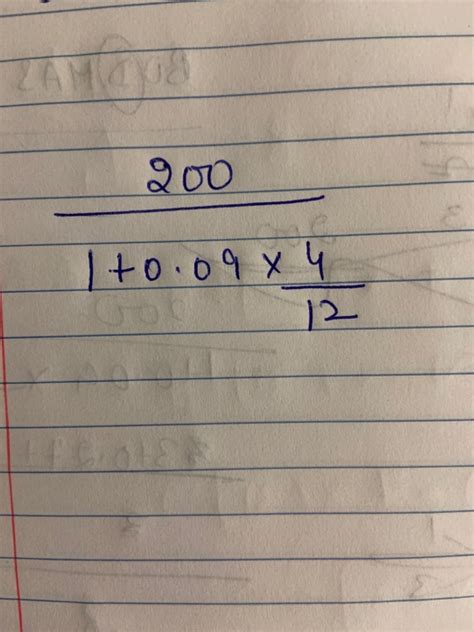 200
1+0.09 × 4
12